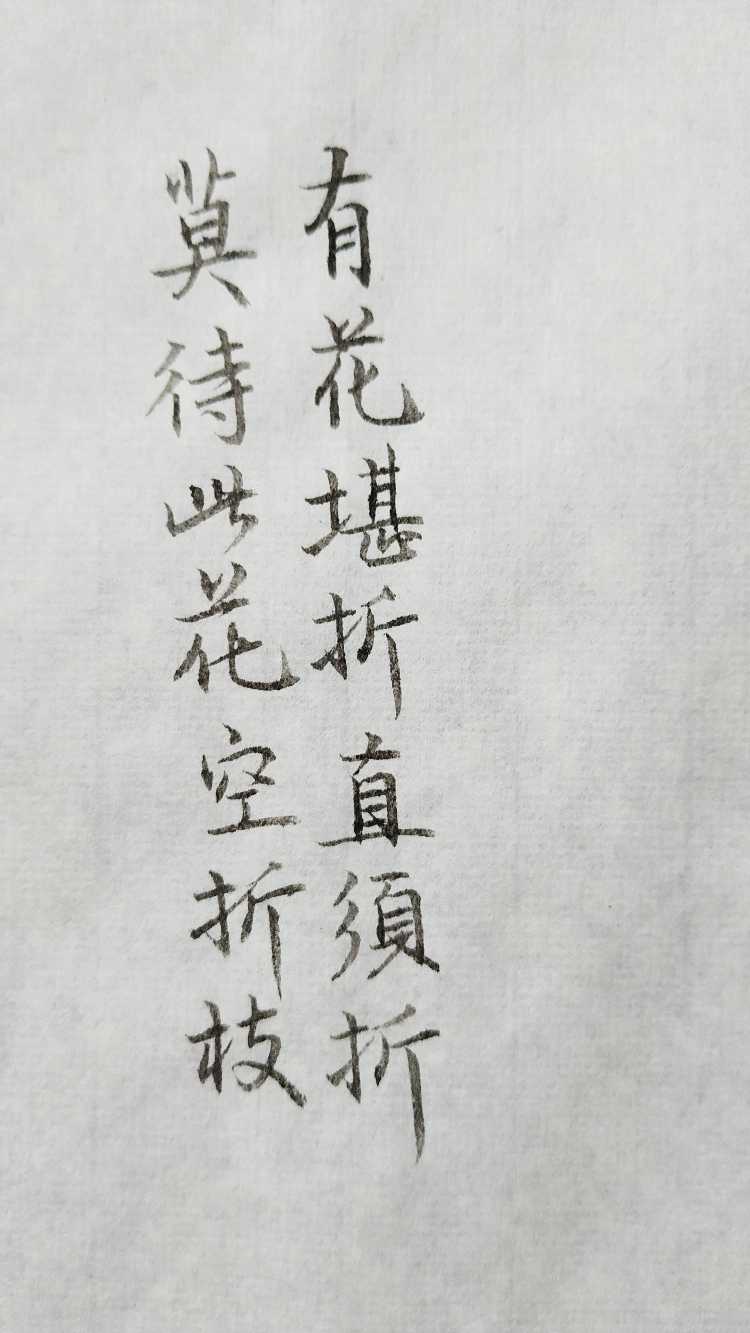 有花堪折直須折
莫待此花空折枝